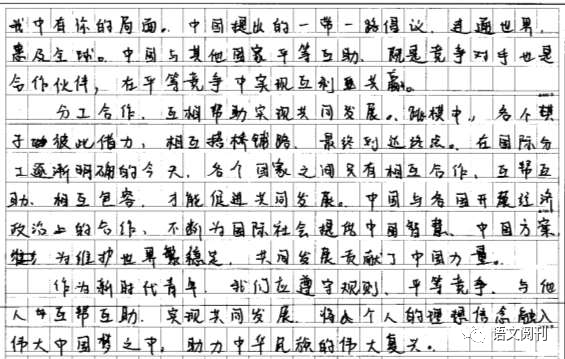 我中有你的局面。中国提出的一带一路倡议,连通世界,
惠及全球。中国与其他国家平等互助,既是竞争对手也是
合作伙伴,在平等竞争中实现互利共赢。
分工合作,互相帮助实现共同发展。跳棋中,各个棋
子彼此借力,相互搭桥铺路,最终到达终点。在国际分
工逐渐明确的今天,各个国家之间只有相互合作,互帮互
助,相互包容,才能促进共同发展。中国与各国开展经济
政治上的合作,不断为国际社会提供中国智慧、中国方案,
为维护世界繁荣稳定,共同发展贡献了中国力量。
作为新时代青年,我们应遵守规则,平等竞争,与他
人互帮互助,实现共同发展,将个人的理想信念融入
伟大中国梦之中,助力中华民族的伟大复兴。
语文周刊